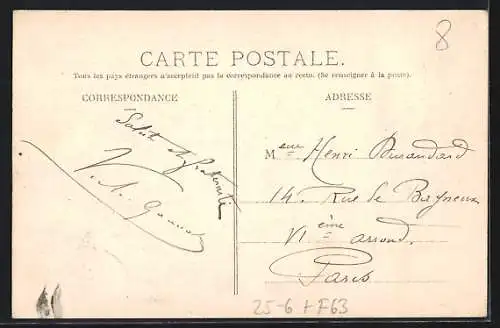 8
CARTE POSTALE.
Tous les pays étrangers n'acceptent pas la correspondance au recto. (Se renseigner à la poste).
CORRESPONDANCE
ADRESSE
Salut et fraternité
V. A.
Meur Henri Durandard
14, Rue de Bagneux
VIème arrond.
Paris
25-6 + F63